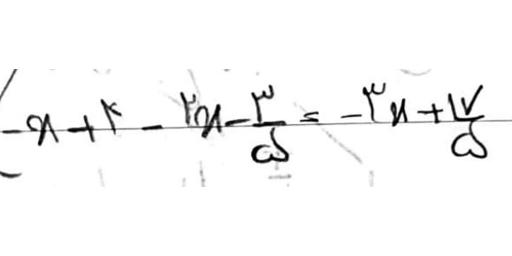 -x + ۴ - ۲x - ۳/۵ = -۳x + ۱۷/۵